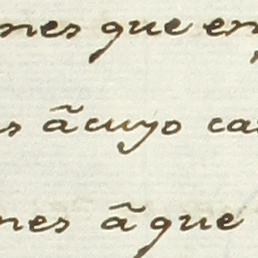 nes que en
s ãcuyo ca
nes ã que